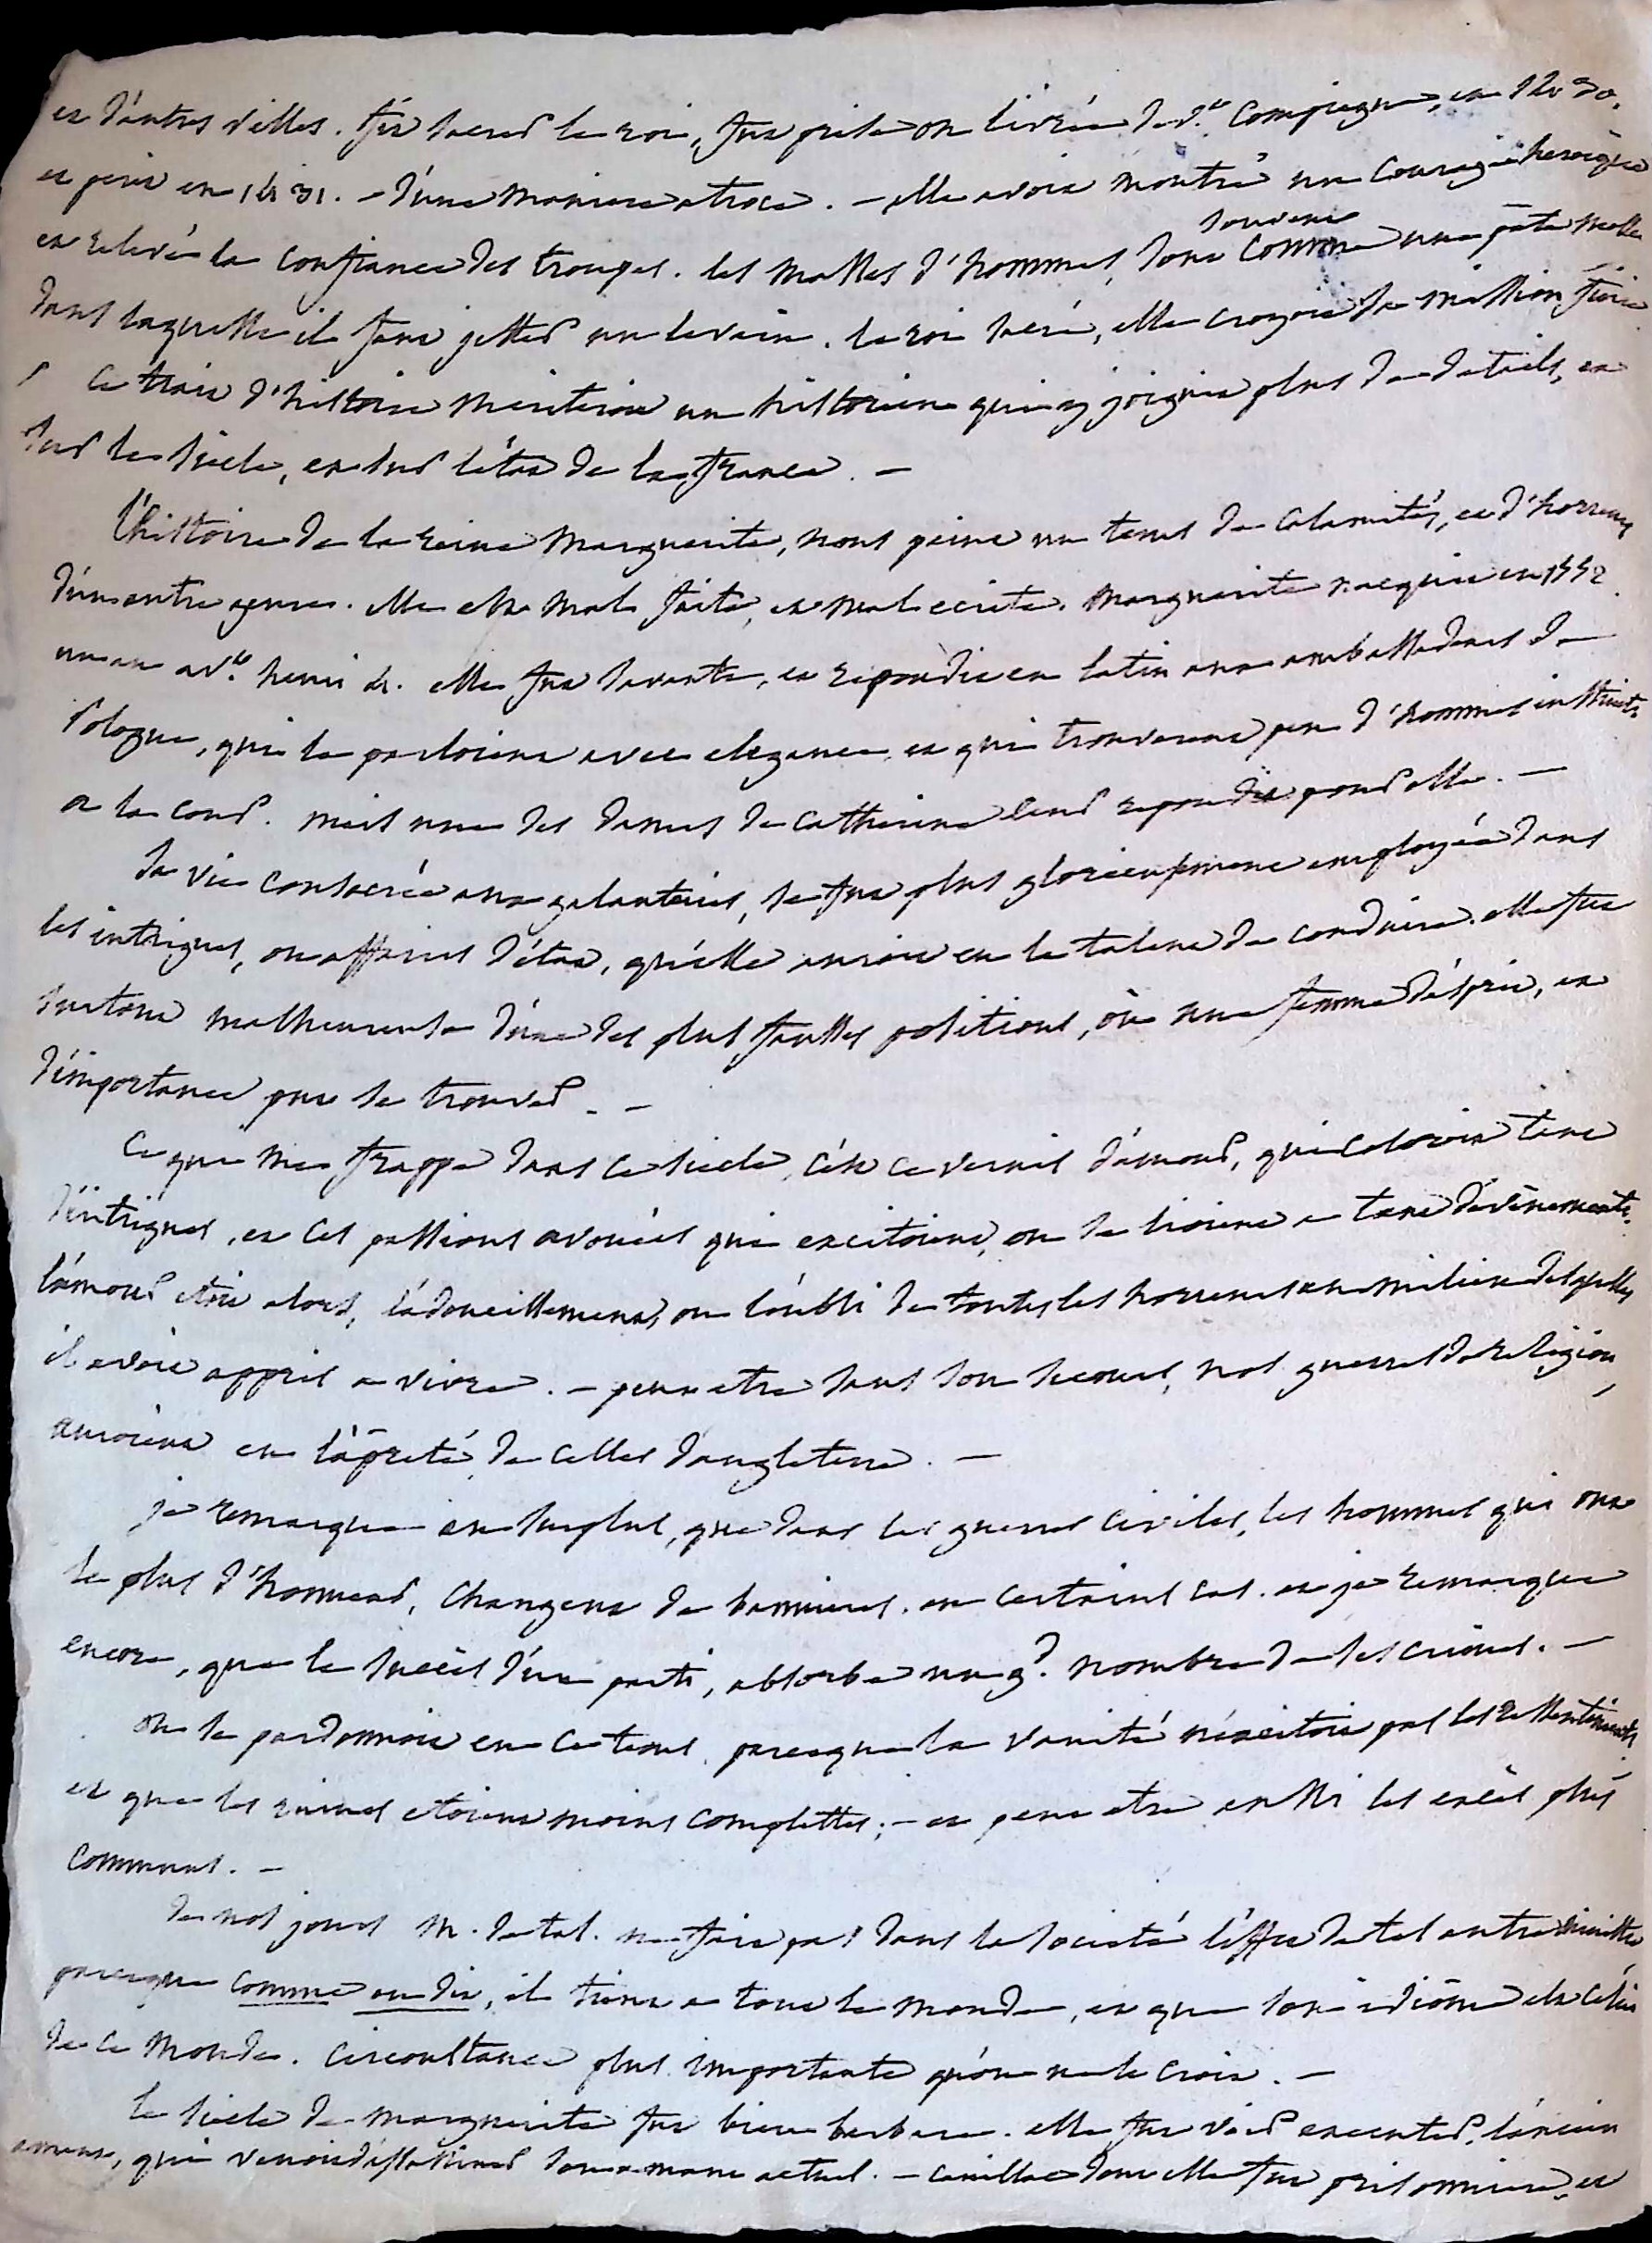 et d'autres villes. fit sacrer le roi, fut prise ou livrée dev.t Compiegne, en 1430.
et périt en 1431. – d'une maniere atroce. – elle avoit montré un courage héroïque
et relevé la confiance des troupes. les masses d'hommes, sont souvent comme une pâte molle
dans laquelle il faut jetter un levain. le roi sacré, elle croyoit sa mission finie
ce trait d'histoire mériteroit un historien qui y joignit plus de détails, et
sur le siècle, et sur l'état de la france. –
l'histoire de la reine Marguerite, nous peint un tems de calamités, et d'horreurs
d'un autre genre. elle est mal faite, et mal ecrite. Marguerite nacquit en 1552
un an av.t henri 4. elle fut savante, et repondit en latin aux ambassadeurs de
Pologne, qui le parloient avec elegance, et qui trouverent peu d'hommes instruits
a la cour. mais une des dames de Catherine leur repondit pour elle. –
sa vie consacrée aux galanteries, se fut plus glorieusement employée dans
les intrigues, ou affaires d'état, qu'elle auroit eu le talent de conduire. elle fut
surtout malheureuse d'une des plus fausses positions, où une femme d'esprit, et
d'importance put se trouver. –
Ce qui me frappe dans ce siècle, c'est ce vernis d'amour, qui coloroit tant
d'intrigues, et ces passions avouées qui excitoient, ou se lioient a tant d'évènements.
l'amour etoit alors, l'adoucissement, ou l'oubli de toutes les horreurs au milieu desquelles
il avoit appris a vivre. – peut etre sans son secours, nos guerres de religion,
auroient eu l'âpreté de celles d'angleterre. –
je remarque au surplus, que dans les guerres civiles, les hommes qui ont
le plus d'honneur, changent de bannieres, en certains cas. et je remarque
encore, que le succès d'un parti, absorbe un g.d nombre de ses crimes. –
on se pardonnoit en ce tems, parceque la vanité n'excitoit pas les ressentiments,
et que les ruines etoient moins complettes; – et peut etre aussi les excès plus
communs. –
de nos jours M. de tal. ne fait pas dans la société l'effet de tel autre ministre
parceque comme on dit, il tient a tout le monde, et que son idiôme est celui
de ce monde. circonstance plus importante qu'on ne le croit. –
le siècle de marguerite fut bien barbare. elle fut voir executer, l'ancien
amant, qui venoit d'assassiner son amant actuel. – Canillac dont elle fut prisonniere, et